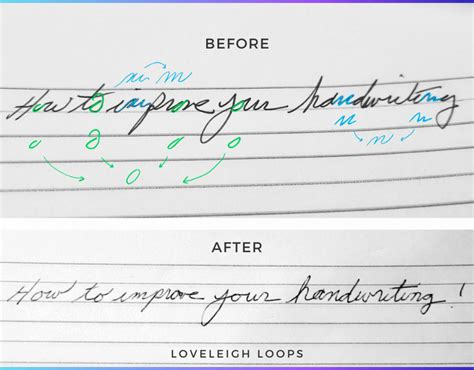 BEFORE
m m
How to improve your handwriting
o o o o n n
o n
AFTER
How to improve your handwriting!
LOVELEIGH LOOPS